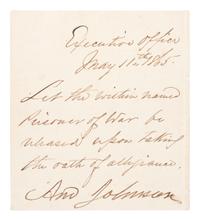 Executive Office
May 11th 1865.
Let the within named
Prisoner of War be
released upon taking
the oath of allegiance.
And Johnson